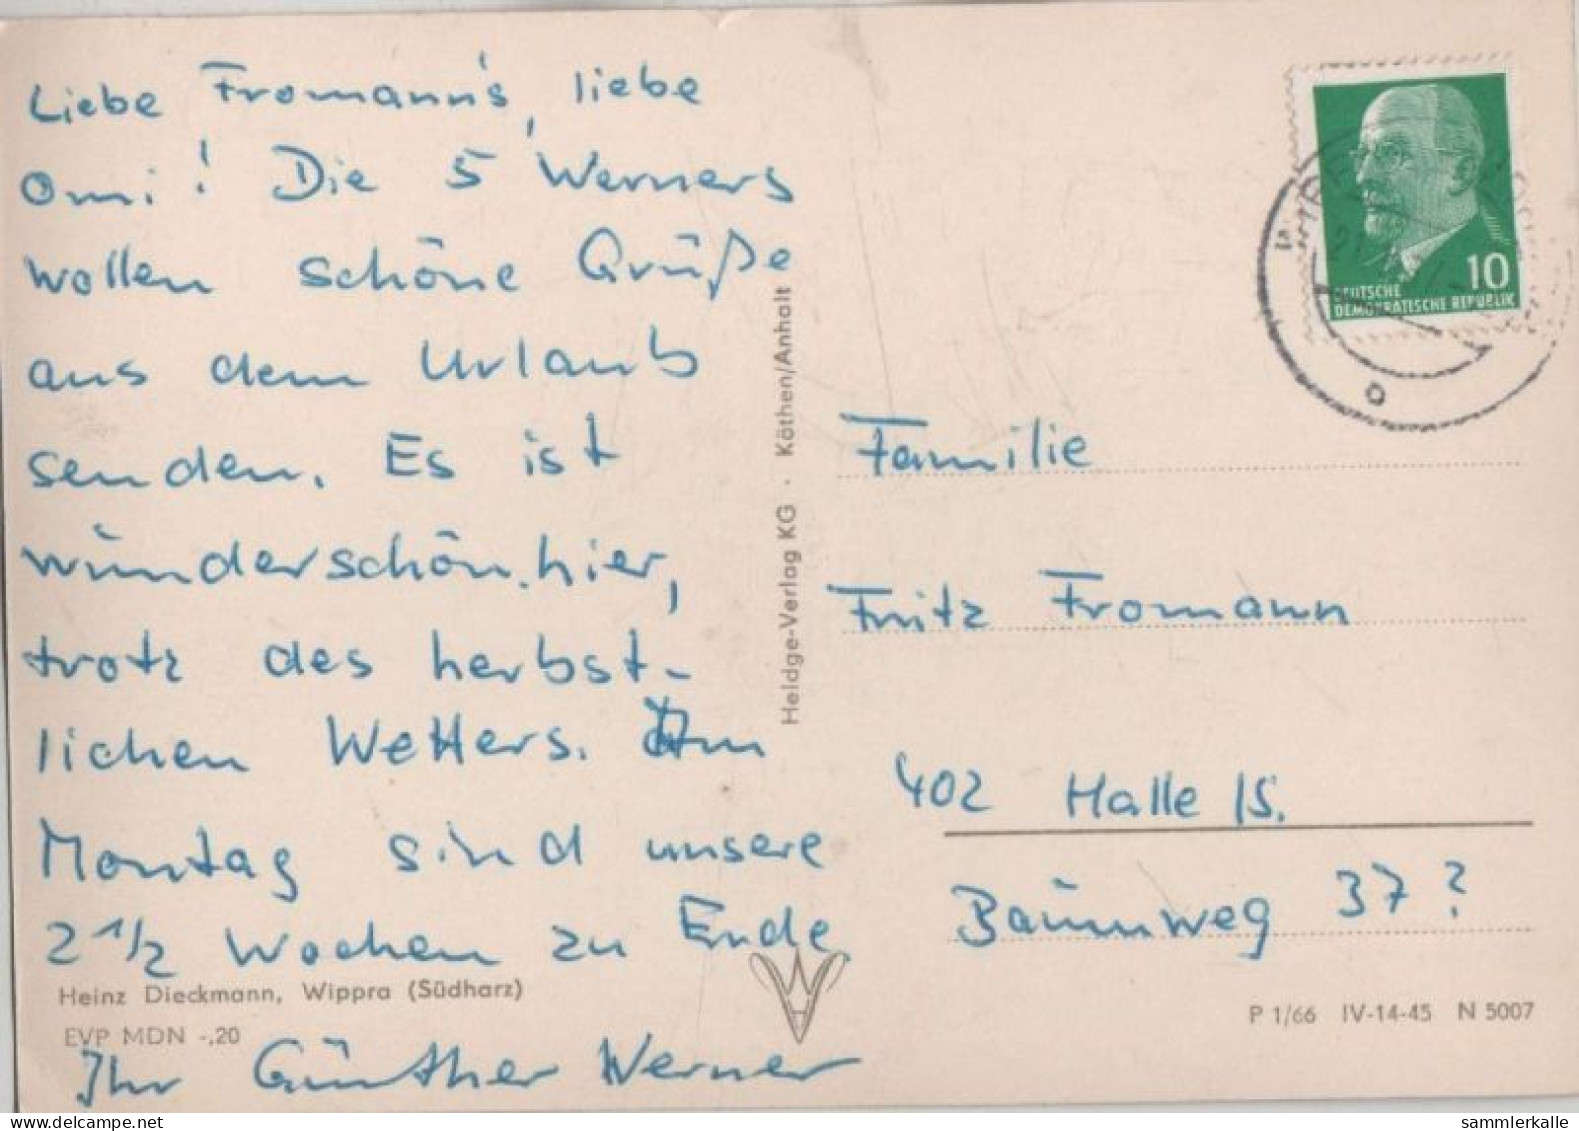 Liebe Fromann's, liebe
Omi! Die 5 Werners
wollen schöne Grüße
aus dem Urlaub
senden. Es ist
wunderschön hier,
trotz des herbst-
lichen Wetters. Am
Montag sind unsere
2 1/2 Wochen zu Ende
Heinz Dieckmann, Wippra (Südharz)
EVP MDN -,20
Ihr Günther Werner
Heldge-Verlag KG · Köthen/Anhalt
10
DEUTSCHE
DEMOKRATISCHE REPUBLIK
Familie
Fritz Fromann
402 Halle /S.
Baumweg 37?
P 1/66 IV-14-45 N 5007
sammlerkalle